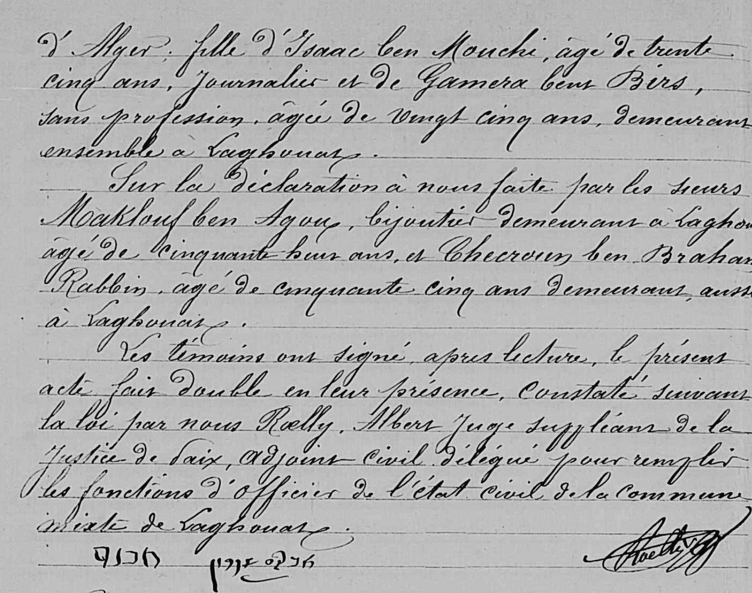 d'Alger; fille d'Isaac ben Mouchi, âgé de trente
cinq ans, Journalier et de Gamera bent Bérs,
sans profession, âgée de vingt cinq ans, demeurant
ensemble à Laghouat.
Sur la déclaration à nous faite par les sieurs
Maklouf ben Agou, bijoutier demeurant à Laghou
âgé de cinquante huit ans, et Checroun ben Braham
Rabbin, âgé de cinquante cinq ans demeurant, auss
à Laghouat.
Les témoins ont signé, après lecture, le présent
acte fait double en leur présence, constaté suivant
la loi par nous Rœlly, Albert Juge suppléant de la
Justice de Paix, adjoint civil délégué pour remplir
les fonctions d'officier de l'état civil de la commune
mixte de Laghouat.